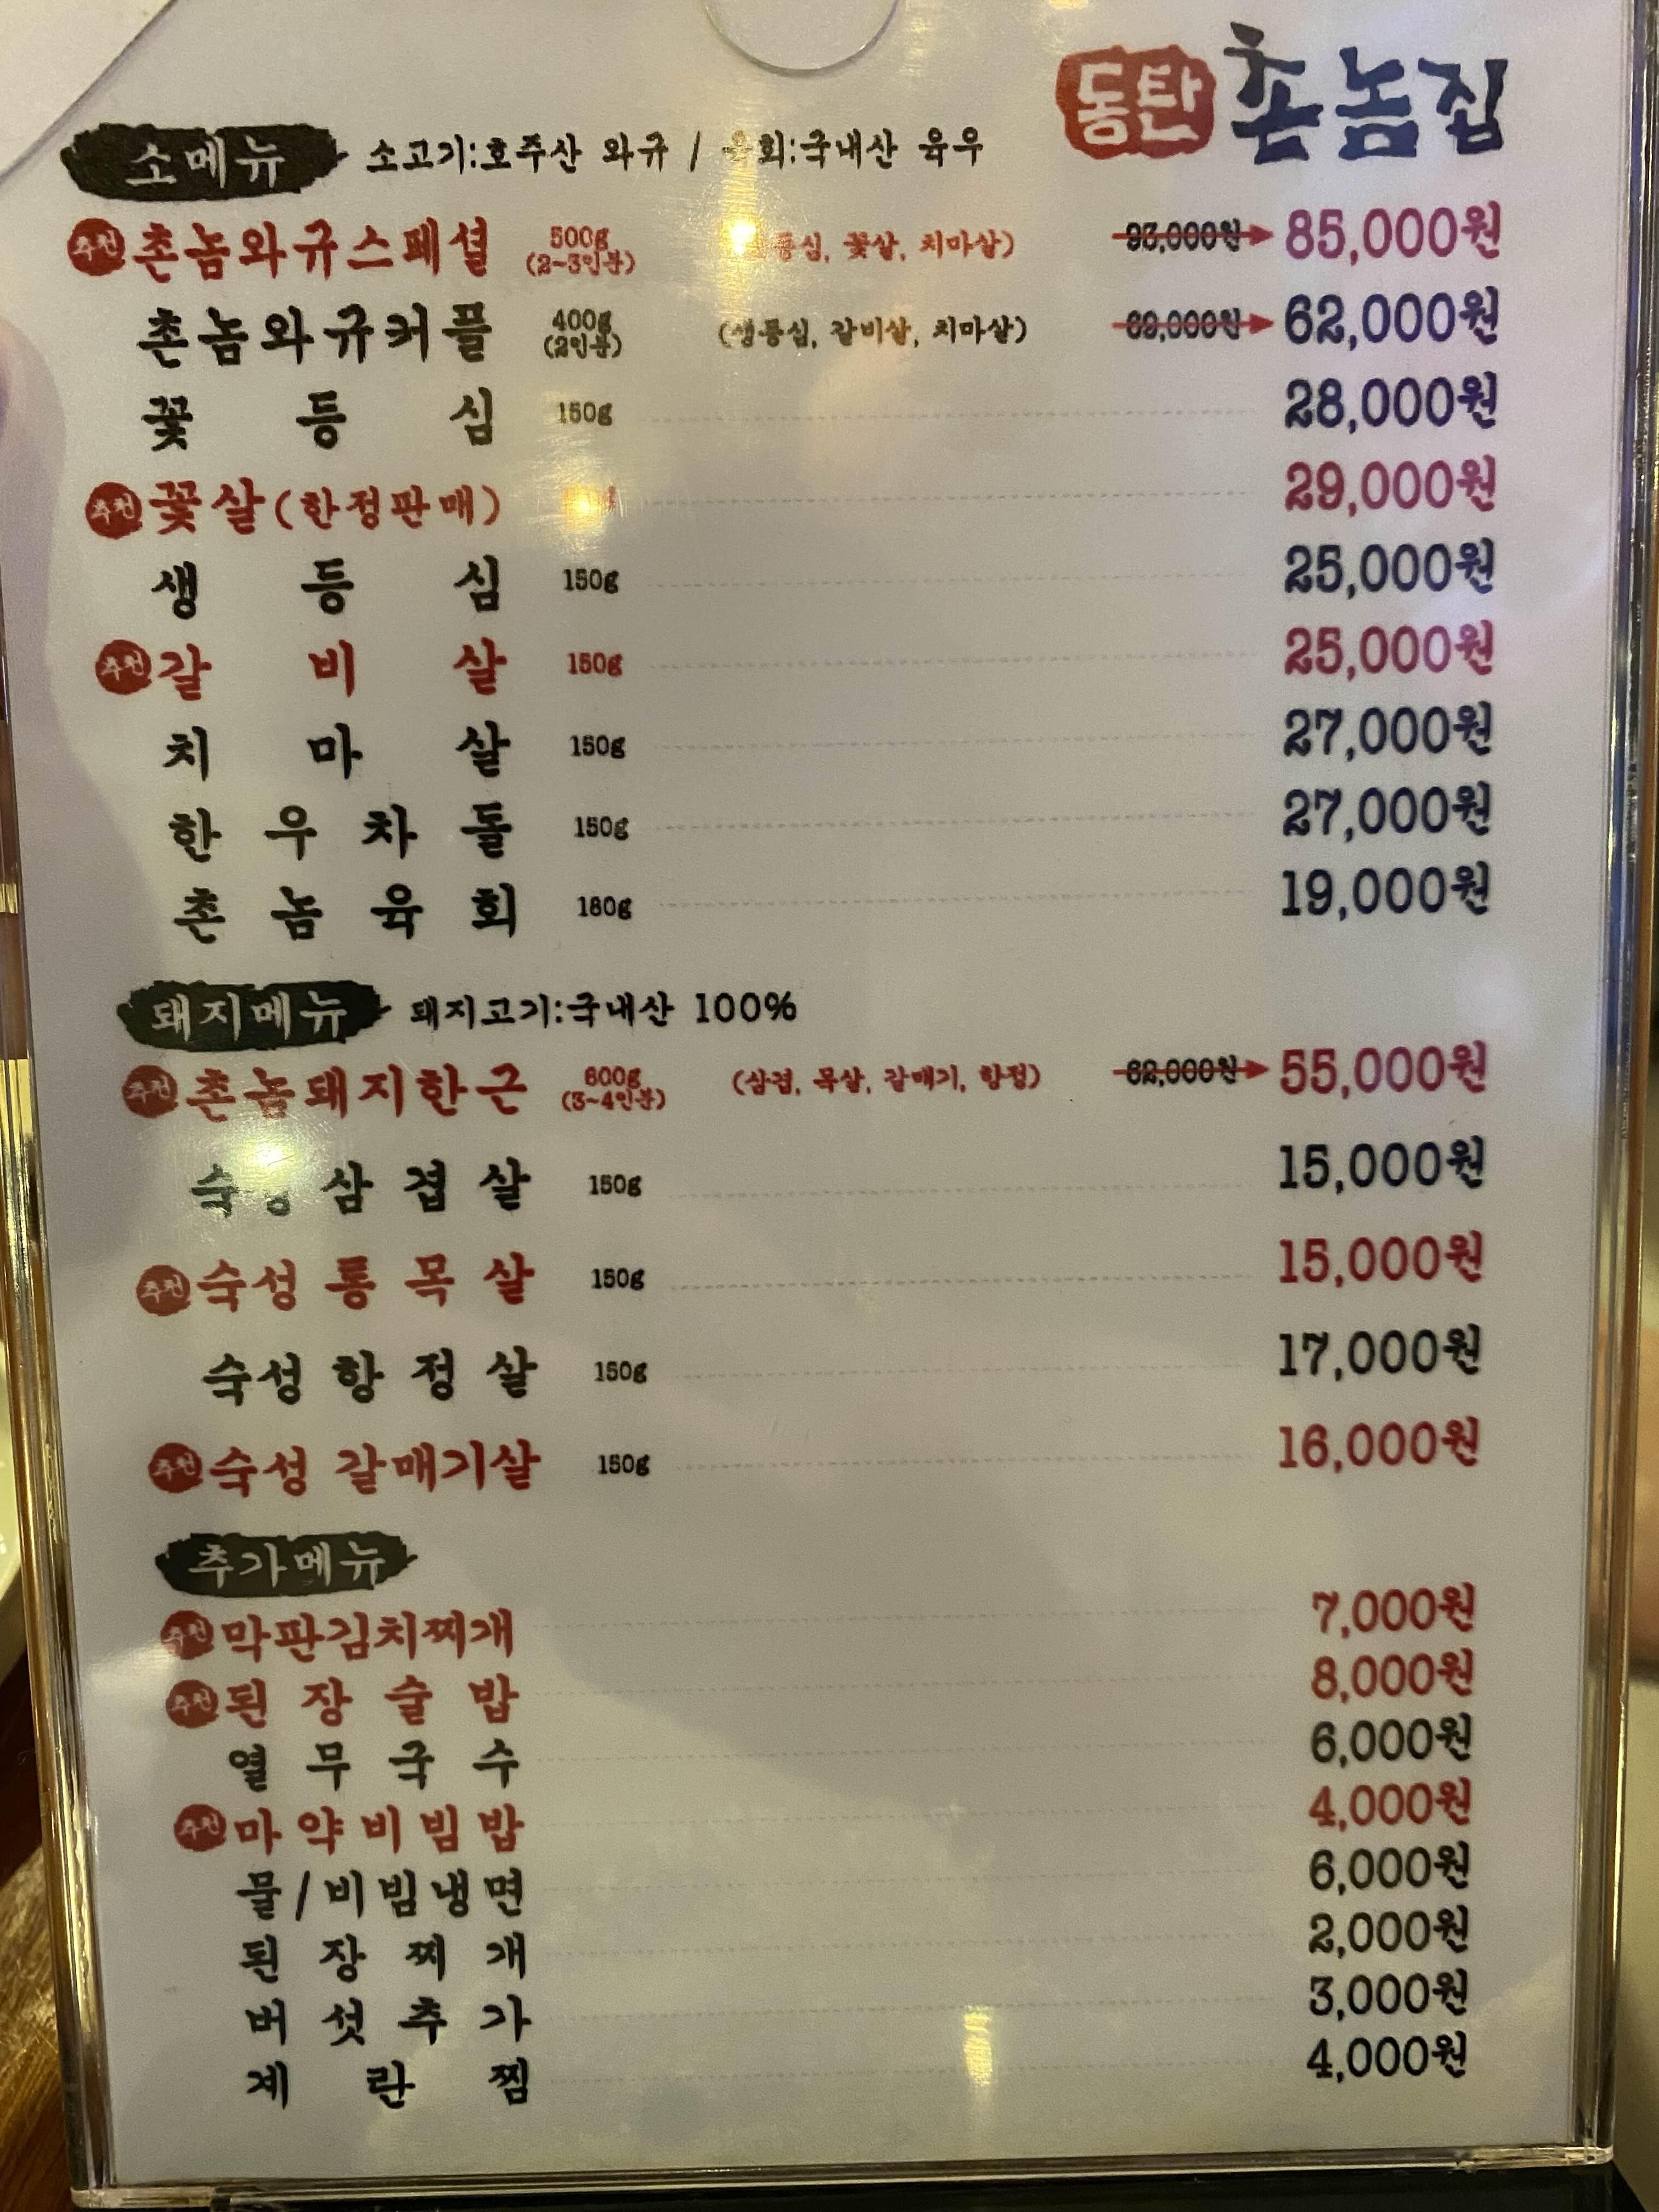 동탄 촌놈집
소메뉴 소고기:호주산 와규 / 육회:국내산 육우
추천 촌놈와규스페셜 500g (2~3인분) 꽃살, 치마살) 93,000원 85,000원
촌놈와규커플 400g (2인분) (생등심, 갈비살, 치마살) 69,000원 62,000원
꽃등심 150g 28,000원
추천 꽃살(한정판매) 29,000원
생등심 150g 25,000원
추천 갈비살 150g 25,000원
치마살 150g 27,000원
한우차돌 150g 27,000원
촌놈육회 180g 19,000원
돼지메뉴 돼지고기:국내산 100%
추천 촌놈돼지한근 600g (3~4인분) (삼겹, 목살, 갈매기, 항정) 62,000원 55,000원
숙성 삼겹살 150g 15,000원
추천 숙성 통목살 150g 15,000원
숙성 항정살 150g 17,000원
추천 숙성 갈매기살 150g 16,000원
추가메뉴
추천 막판김치찌개 7,000원
추천 된장술밥 8,000원
열무국수 6,000원
추천 마약비빔밥 4,000원
물/비빔냉면 6,000원
된장찌개 2,000원
버섯추가 3,000원
계란찜 4,000원